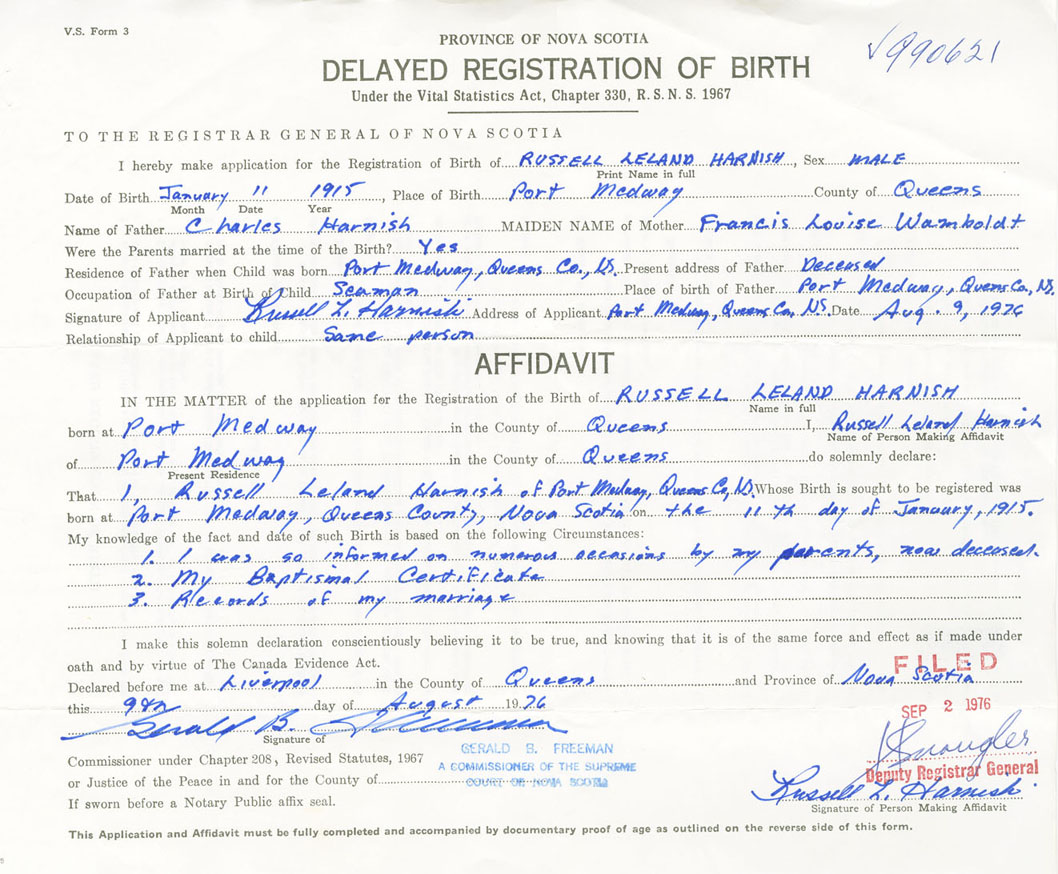 V.S. Form 3
990621
PROVINCE OF NOVA SCOTIA
DELAYED REGISTRATION OF BIRTH
Under the Vital Statistics Act, Chapter 330, R.S.N.S. 1967
TO THE REGISTRAR GENERAL OF NOVA SCOTIA
I hereby make application for the Registration of Birth of RUSSELL LELAND HARNISH, Sex MALE
Print Name in full
Date of Birth January 11 1915, Place of Birth Port Medway County of Queens
Month Date Year
Name of Father Charles Harnish MAIDEN NAME of Mother Francis Louise Wamboldt
Were the Parents married at the time of the Birth? Yes
Residence of Father when Child was born Port Medway, Queens Co., NS. Present address of Father Deceased
Occupation of Father at Birth of Child Seaman Place of birth of Father Port Medway, Queens Co., NS.
Signature of Applicant Russell L. Harnish Address of Applicant Port Medway, Queens Co., NS. Date Aug. 9, 1976
Relationship of Applicant to child Same person
AFFIDAVIT
IN THE MATTER of the application for the Registration of the Birth of RUSSELL LELAND HARNISH
Name in full
born at Port Medway in the County of Queens I, Russell Leland Harnish
Name of Person Making Affidavit
of Port Medway in the County of Queens do solemnly declare:
Present Residence
That I, Russell Leland Harnish of Port Medway, Queens Co., NS. Whose Birth is sought to be registered was
born at Port Medway, Queens County, Nova Scotia on the 11th day of January, 1915.
My knowledge of the fact and date of such Birth is based on the following Circumstances:
1. I was so informed on numerous occasions by my parents, now deceased.
2. My Baptismal Certificate
3. Records of my marriage
I make this solemn declaration conscientiously believing it to be true, and knowing that it is of the same force and effect as if made under
oath and by virtue of The Canada Evidence Act.
FILED
Declared before me at Liverpool in the County of Queens and Province of Nova Scotia
this 9th day of August 1976
SEP 2 1976
Gerald B. Freeman
Signature of
GERALD B. FREEMAN
A COMMISSIONER OF THE SUPREME
COURT OF NOVA SCOTIA
Commissioner under Chapter 208, Revised Statutes, 1967
or Justice of the Peace in and for the County of
If sworn before a Notary Public affix seal.
Deputy Registrar General
Russell L. Harnish
Signature of Person Making Affidavit
This Application and Affidavit must be fully completed and accompanied by documentary proof of age as outlined on the reverse side of this form.